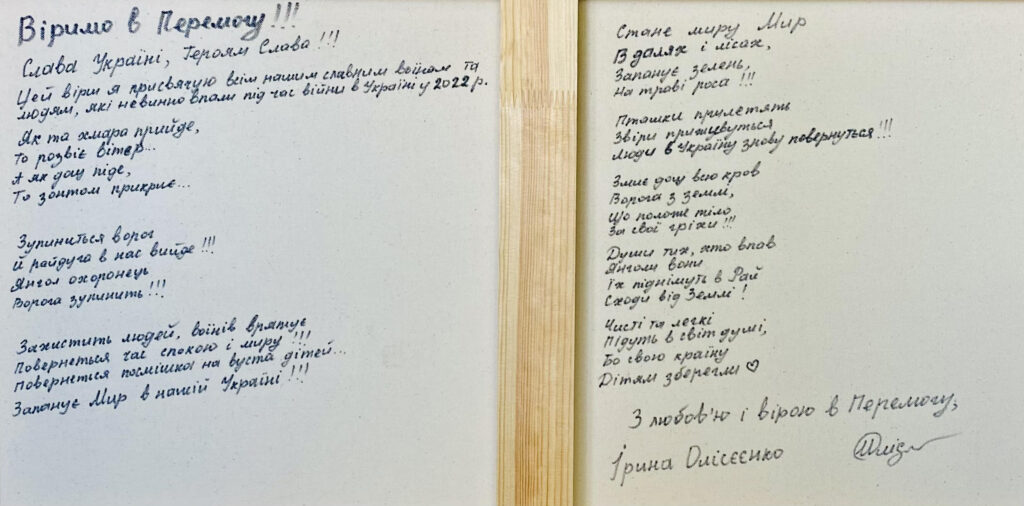 Віримо в Перемогу!!!
Слава Україні, Героям Слава!!!
Цей вірш я присвячую всім нашим славним воїнам та
людям, які невинно впали під час війни в Україні у 2022 р.
Як та хмара прийде,
То розвіє вітер...
А як дощ піде,
То зонтом прикриє...
Зупиниться ворог
Й райдуга в нас вийде!!!
Янгол охоронець
Ворога зупинить!!!
Захистить людей, воїнів врятує
Повернеться час спокою і миру!!!
Повернеться посмішка на вуста дітей...
Запанує Мир в нашій Україні!!!
Стане миру Мир
В далях і лісах,
Запанує зелень,
На траві роса!!!
Пташки прилетять
Звіри приживуться
Люди в Україну знову повернуться!!!
Змиє дощ всю кров
Ворога з землі,
Що положе тіло
За свої гріхи!!!
Души тих, хто впав
Янголи вони
Їх піднімуть в Рай
Сходи від Землі!
Чисті та легкі
Підуть в світ думі,
Бо свою країну
Дітям зберегли ♡
З любов'ю і вірою в Перемогу,
Ірина Олісєєнко